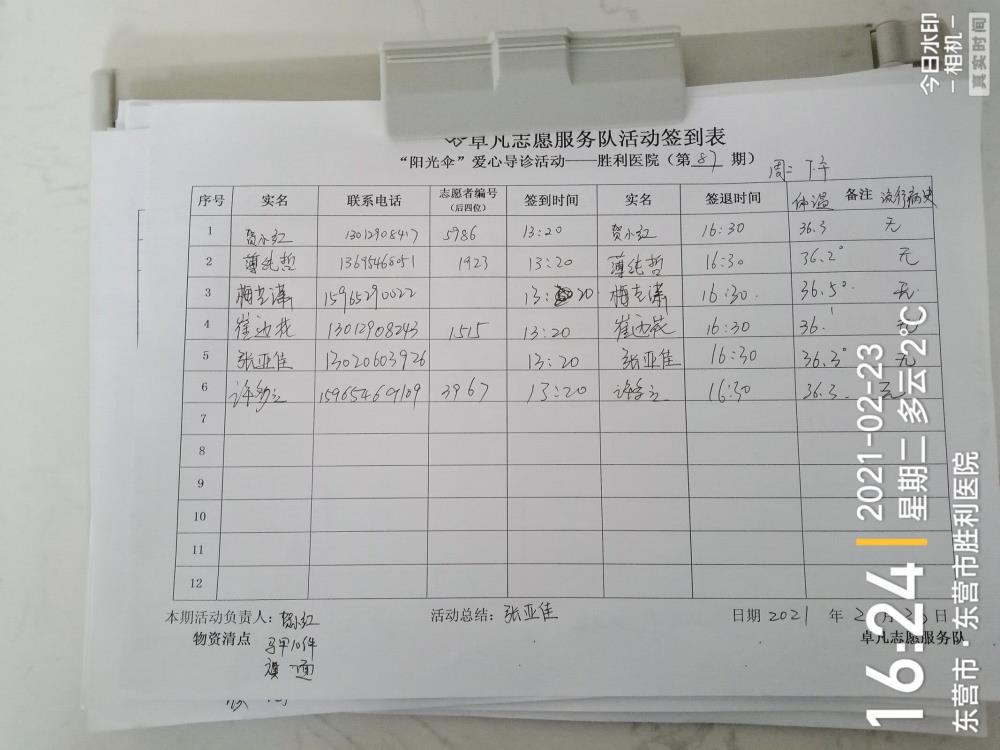 卓凡志愿服务队活动签到表
“阳光伞”爱心导诊活动——胜利医院（第 87 期）
周二 下午
序号 实名 联系电话 志愿者编号（后四位） 签到时间 实名 签退时间 体温 备注 流行病史
1 贺小红 13012908417 5986 13:20 贺小红 16:30 36.3 无
2 薄纯哲 13695468051 1923 13:20 薄纯哲 16:30 36.2° 无
3 15965290022 13:20 16:30 36.5° 无
4 13012908243 1515 13:20 16:30 36.1 无
5 张亚佳 13020603926 13:20 张亚佳 16:30 36.3° 无
6 15965469109 3967 13:20 16:30 36.3 无
7
8
9
10
11
12
本期活动负责人：贺小红 活动总结：张亚佳 日期 2021 年 2月23日
物资清点 马甲10件 卓凡志愿服务队
旗 一面
今日水印
－相机－
真实时间
16:24
2021-02-23
星期二 多云 2℃
东营市·东营市胜利医院